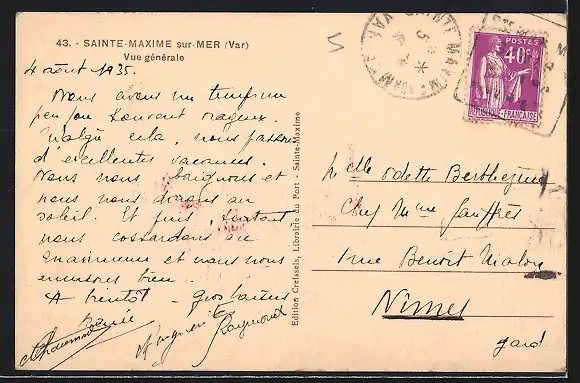 43. - SAINTE-MAXIME sur-MER (Var)
Vue générale
4 août 1935.
Nous avons un temps un
peu fou souvent nageux.
Malgré cela, nous passons
d'excellentes vacances.
Nous nous baignons et
nous nous dorons au
soleil. Et puis, surtout
nous cossardons au
maximum et nous nous
amusons bien.
A bientôt - gros baisers
Renée
Marguerite
Raymond
Edition Creissels, Librairie du Port - Sainte-Maxime
POSTES
40c
REPUBLIQUE-FRANÇAISE
Melle Odette
Chez Mme
1 rue Benoit Malon
Nîmes
Gard